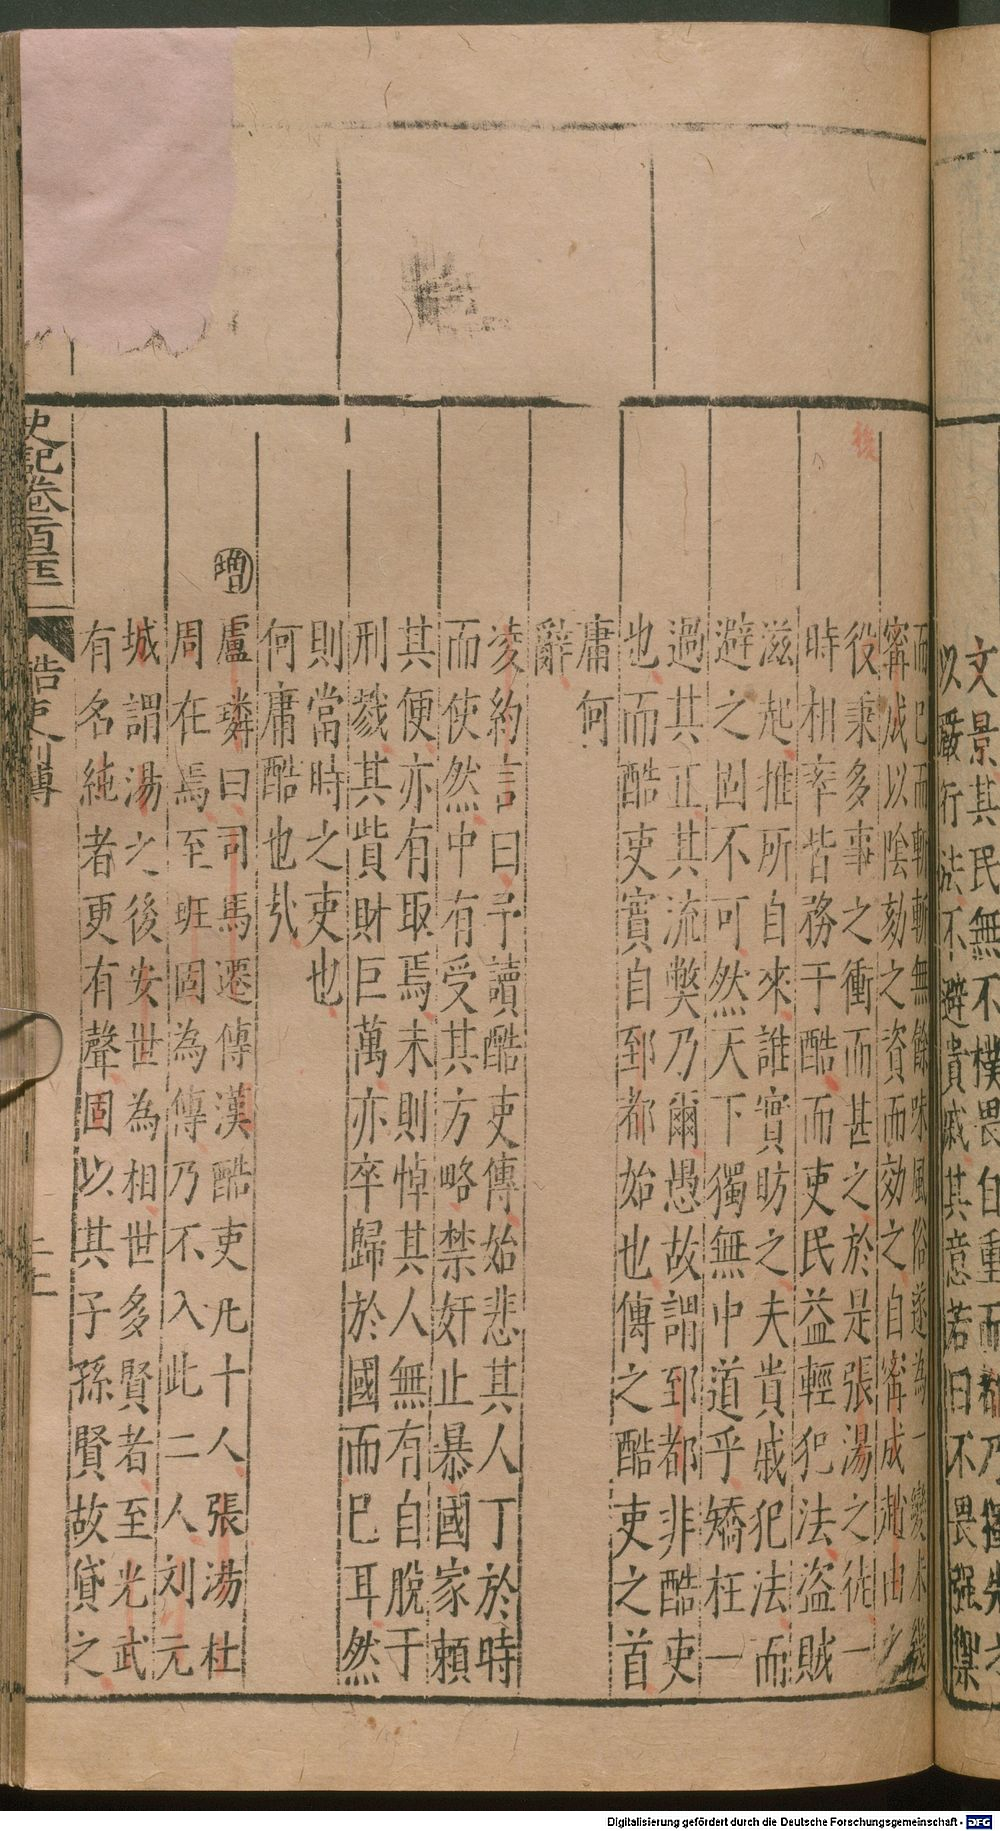 文景其民無不樸畏自重而都乃獨先
以嚴行法不避貴戚其意若曰不畏强禦
而已而斬斬無餘味風俗遂為一變未幾
甯成以陰刻之資而効之自甯成趙由之
後
役秉多事之衝而甚之於是張湯之徒一
時相率皆務于酷而吏民益輕犯法盜賊
滋起推所自來誰實昉之夫貴戚犯法而
避之固不可然天下獨無中道乎矯枉一
過其正其流獘乃爾愚故謂郅都非酷吏
也而酷吏實自郅都始也傳之酷吏之首
庸何
辭
凌約言曰予讀酷吏傳始悲其人丁於時
而使然中有受其方略禁奸止暴國家賴
其便亦有取焉未則悼其人無有自脫于
刑戮其貲財巨萬亦卒歸於國而已耳然
則當時之吏也
何庸酷也㢤
增
盧璘曰司馬遷傳漢酷吏凡十人張湯杜
周在焉至班固為傳乃不入此二人刘元
城謂湯之後安世為相世多賢者至光武
有名純者更有聲固以其子孫賢故貸之
史記卷一百
酷吏列傳
Digitalisierung gefördert durch die Deutsche Forschungsgemeinschaft - DFG